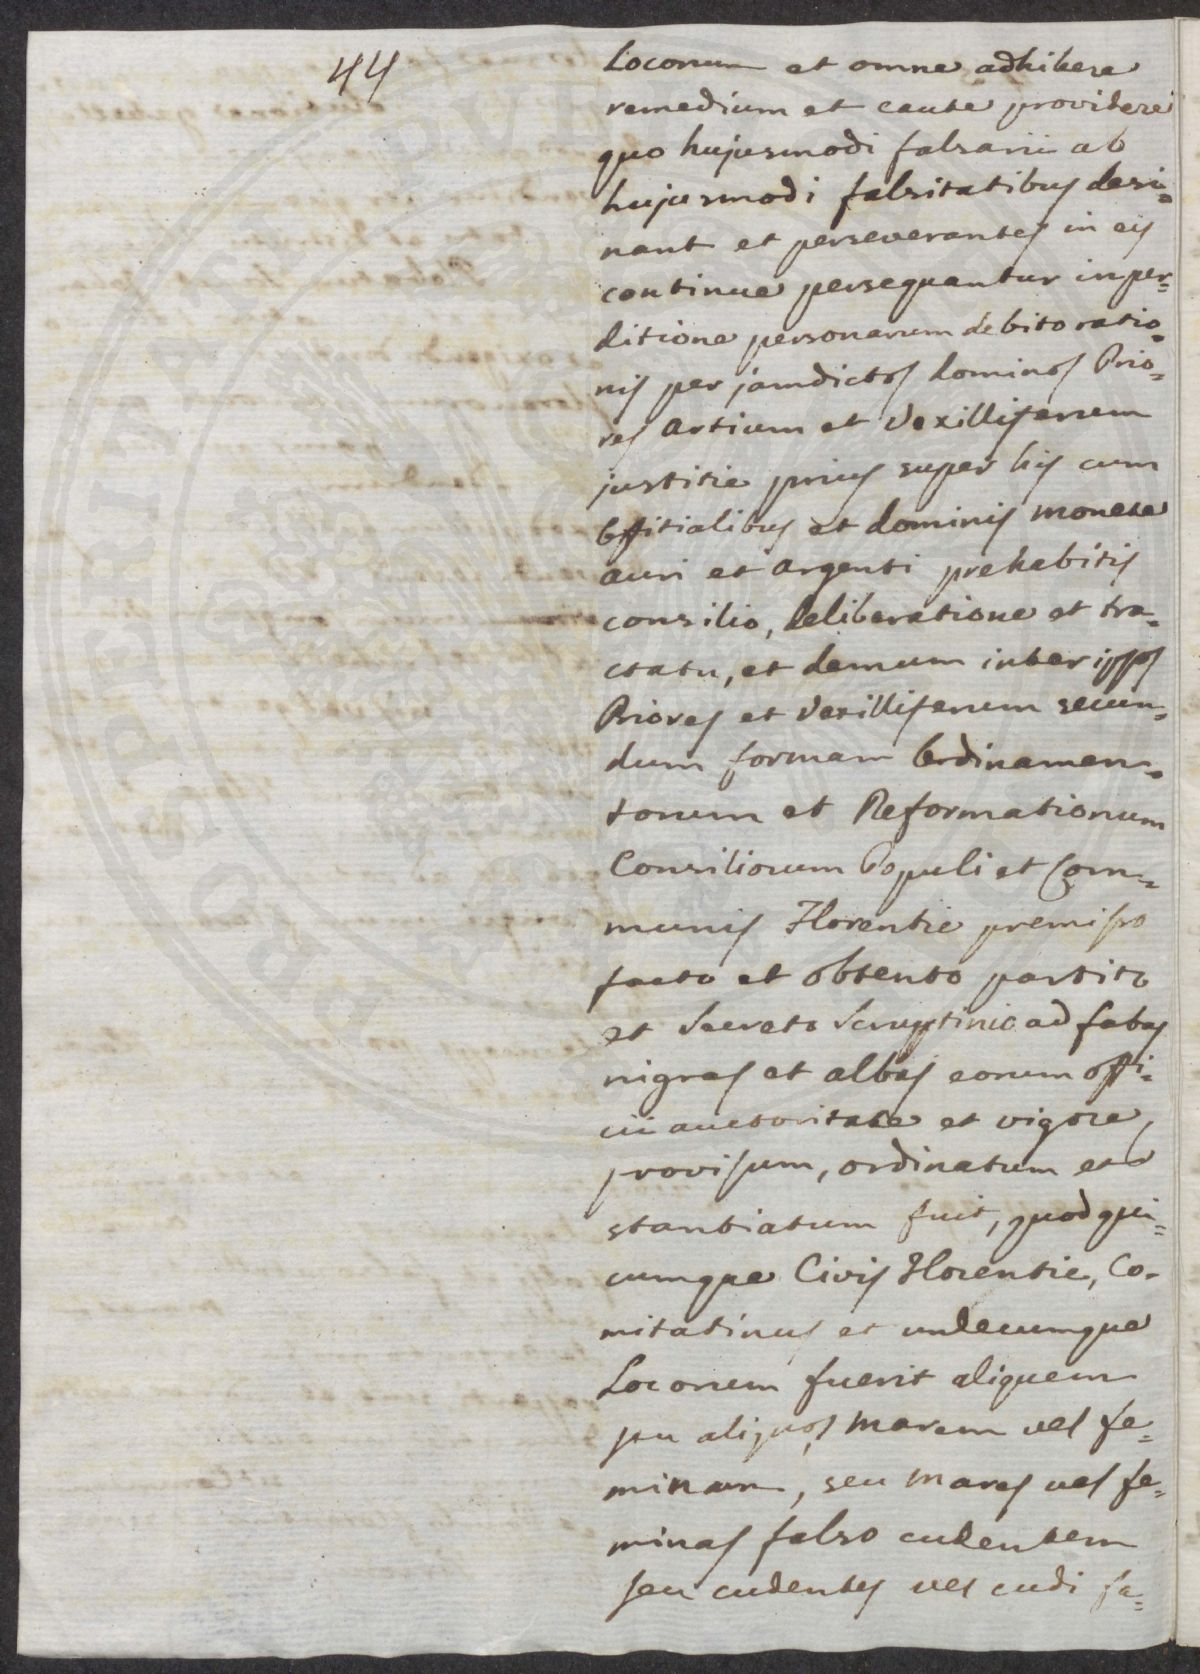 44
Locorum et omne adhibere
remedium et caute providere
quo hujusmodi falsarii ab
hujusmodi falsitatibus desi=
nant et perseverantes in eis
continue persequantur in per=
ditione personarum debito ratio=
nis per jamdictos dominos Prio=
res Artium et Vexilliferum
justitie prius super his cum
Offitialibus et dominis monete
auri et argenti prehabitis
consilio, deliberatione et tra=
ctatu, et demum inter ipsos
Priores et Vexilliferum secun=
dum formam Ordinamen=
torum et Reformationum
Consiliorum Populi et Com=
munis Florentie premisso
facto et obtento partito
et secreto scruptinio ad fabas
nigras et albas eorum offi=
cii auctoritate et vigore,
provisum, ordinatum et
stantiatum fuit, quod qui=
cumque Civis Florentie, Co-
mitatinus et undecumque
Locorum fuerit aliquem
seu aliquos, marem vel fe=
minam, seu mares vel fe=
minas falso cudentem
seu cudentes vel cudi fa=